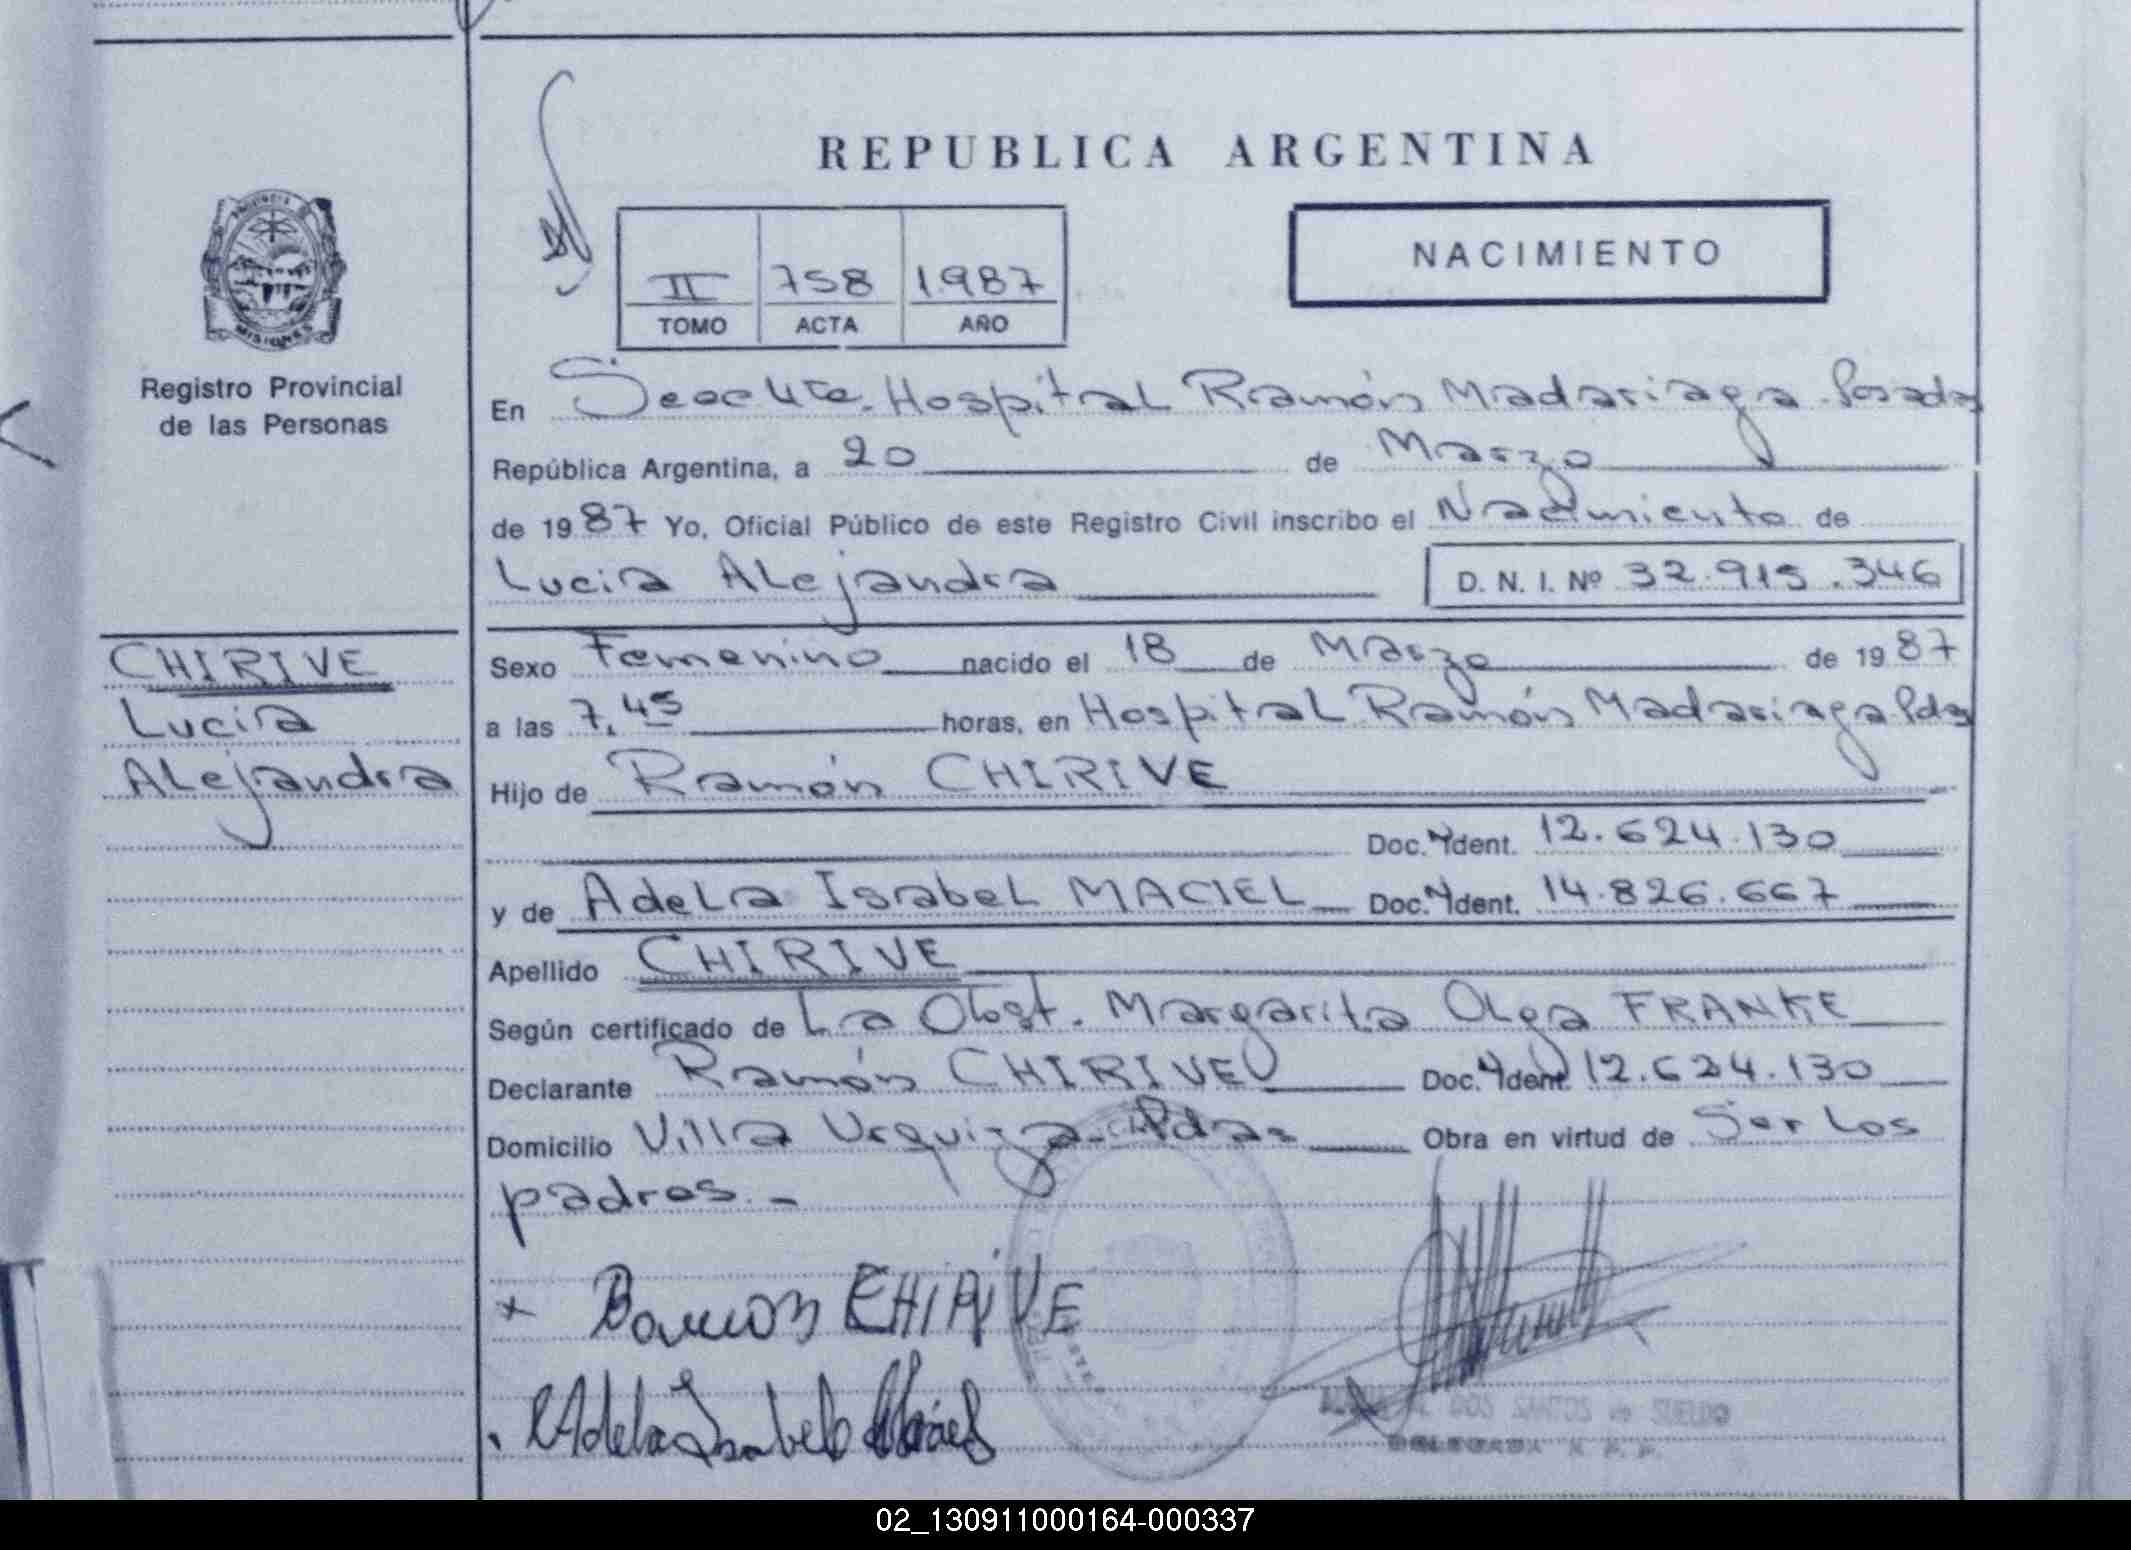 REPUBLICA ARGENTINA
PROVINCIA
MISIONES
Registro Provincial
de las Personas
II 758 1987
TOMO ACTA AÑO
NACIMIENTO
En Hospital Ramón Madariaga Posadas
República Argentina, a 20 de Marzo
de 1987 Yo, Oficial Público de este Registro Civil inscribo el Nacimiento de
Lucia Alejandra D. N. I. Nº 32.915.346
CHIRIVE
Lucia
Alejandra
Sexo Femenino nacido el 18 de Marzo de 1987
a las 7,45 horas, en Hospital Ramón Madariaga Pdas
Hijo de Ramón CHIRIVE
Doc. Ident. 12.624.130
y de Adela Isabel MACIEL Doc. Ident. 14.826.667
Apellido CHIRIVE
Según certificado de La Obst. Margarita Olga FRANKE
Declarante Ramón CHIRIVE Doc. Ident. 12.624.130
Domicilio Villa Urquiza - Pdas Obra en virtud de Ser los
padres. -
x Ramon CHIRIVE
Adela Isabel Maciel
DOS SANTOS de SUELDO
DELEGADA R. P. P.
02_130911000164-000337